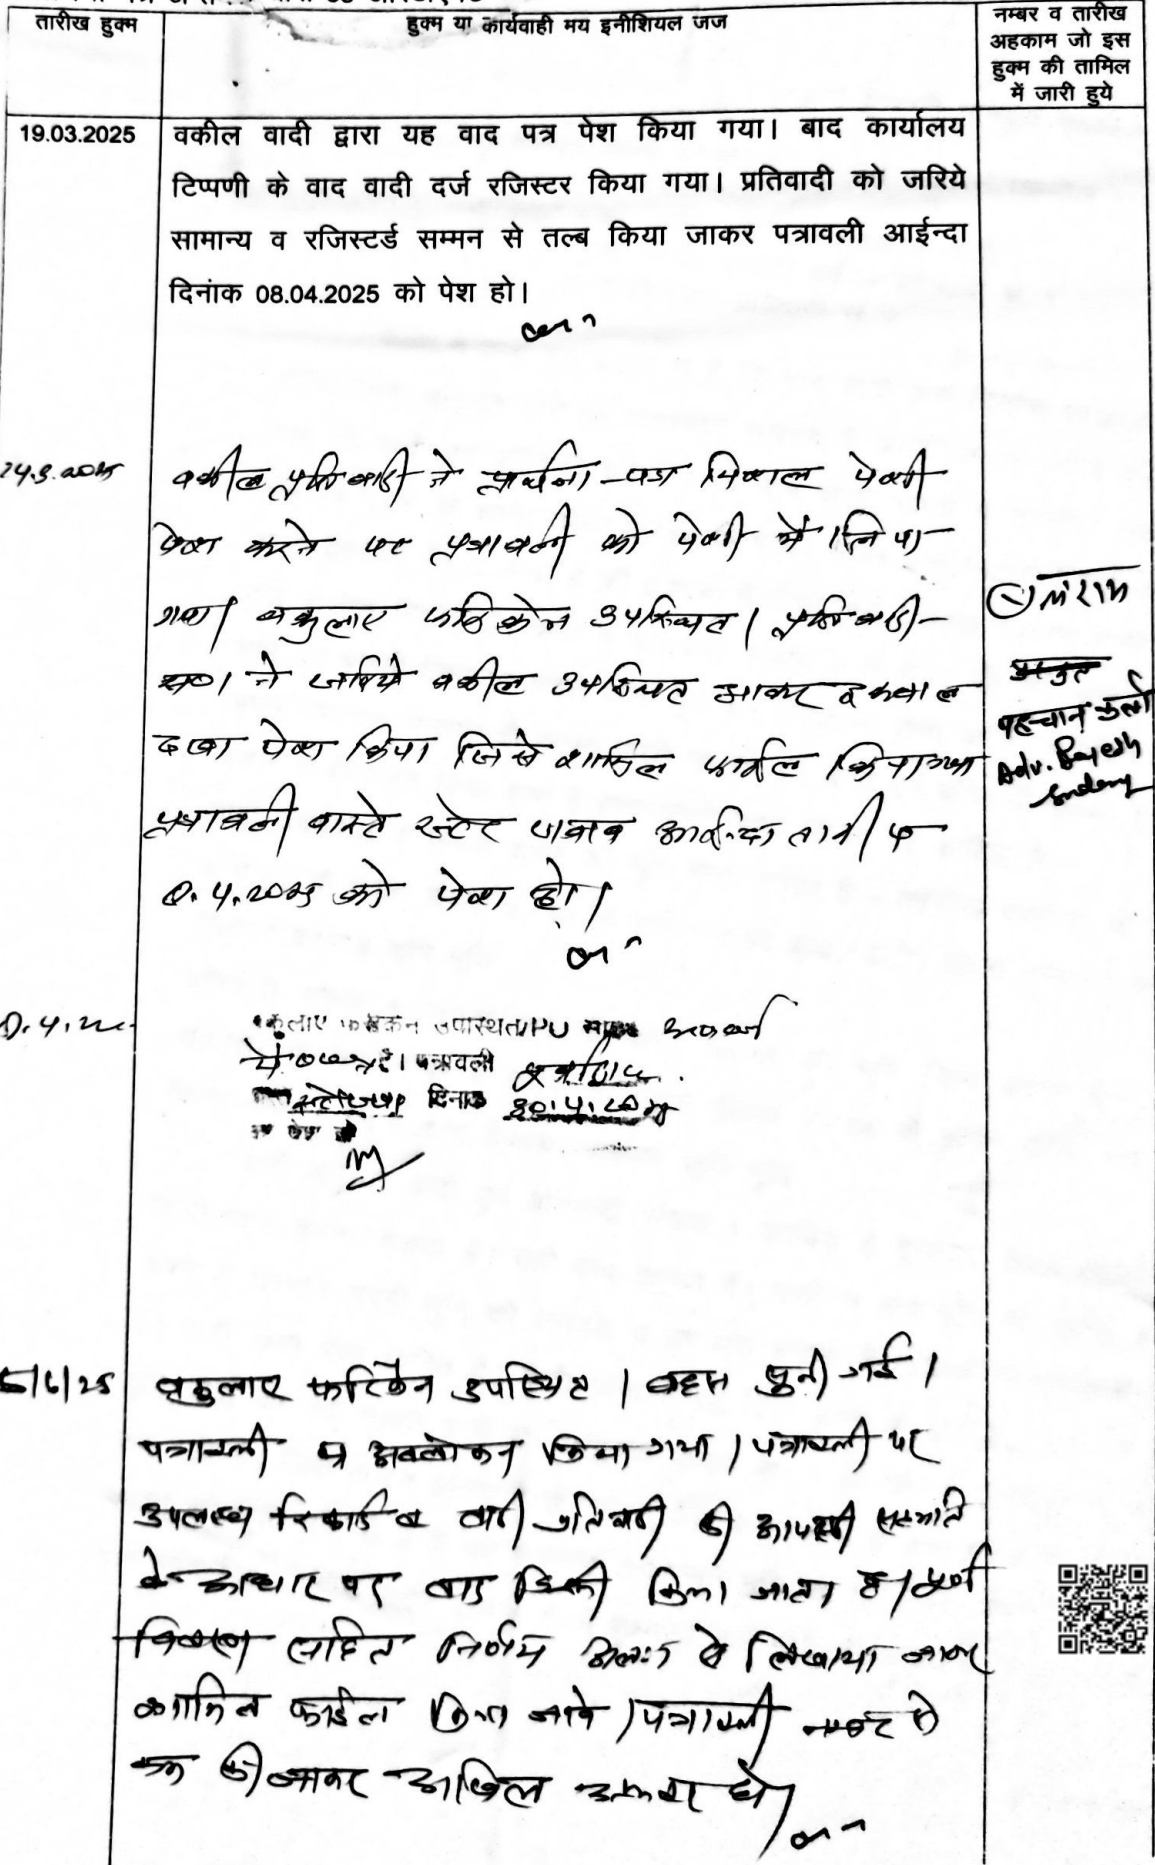 तारीख हुक्म
हुक्म या कार्यवाही मय इनीशियल जज
नम्बर व तारीख
अहकाम जो इस
हुक्म की तामिल
में जारी हुये
19.03.2025
वकील वादी द्वारा यह वाद पत्र पेश किया गया। बाद कार्यालय
टिप्पणी के वाद वादी दर्ज रजिस्टर किया गया। प्रतिवादी को जरिये
सामान्य व रजिस्टर्ड सम्मन से तल्ब किया जाकर पत्रावली आईन्दा
दिनांक 08.04.2025 को पेश हो।
वकील प्रतिवादी ने प्रार्थना-पत्र पेशी
पेश करने पर पत्रावली को पेशी में लिया
गया। वकुलाए फरिकेन उपस्थित। प्रतिवादी-
गण ने जरिये वकील उपस्थित आकर इकबाल
दावा पेश किया जिसे शामिल फाईल किया गया
पत्रावली वास्ते स्टेट जवाब आईन्दा तारीख
को पेश हो।
पहचान कर्ता
Adv.
वकुलाए फरिकेन उपस्थित। PO
है। पत्रावली
दिनांक 30.4.2025
5/6/25
वकुलाए फरिकेन उपस्थित। बहस सुनी गई।
पत्रावली का अवलोकन किया गया। पत्रावली पर
उपलब्ध रिकार्ड व वादी प्रतिवादी की आपसी सहमति
के आधार पर वाद डिक्री किया जाता है। पूर्ण
विवरण सहित निर्णय अलग से लिखाया जाकर
शामिल फाईल किया जावे। पत्रावली नम्बर से
कम की जाकर दाखिल दफ्तर हो।